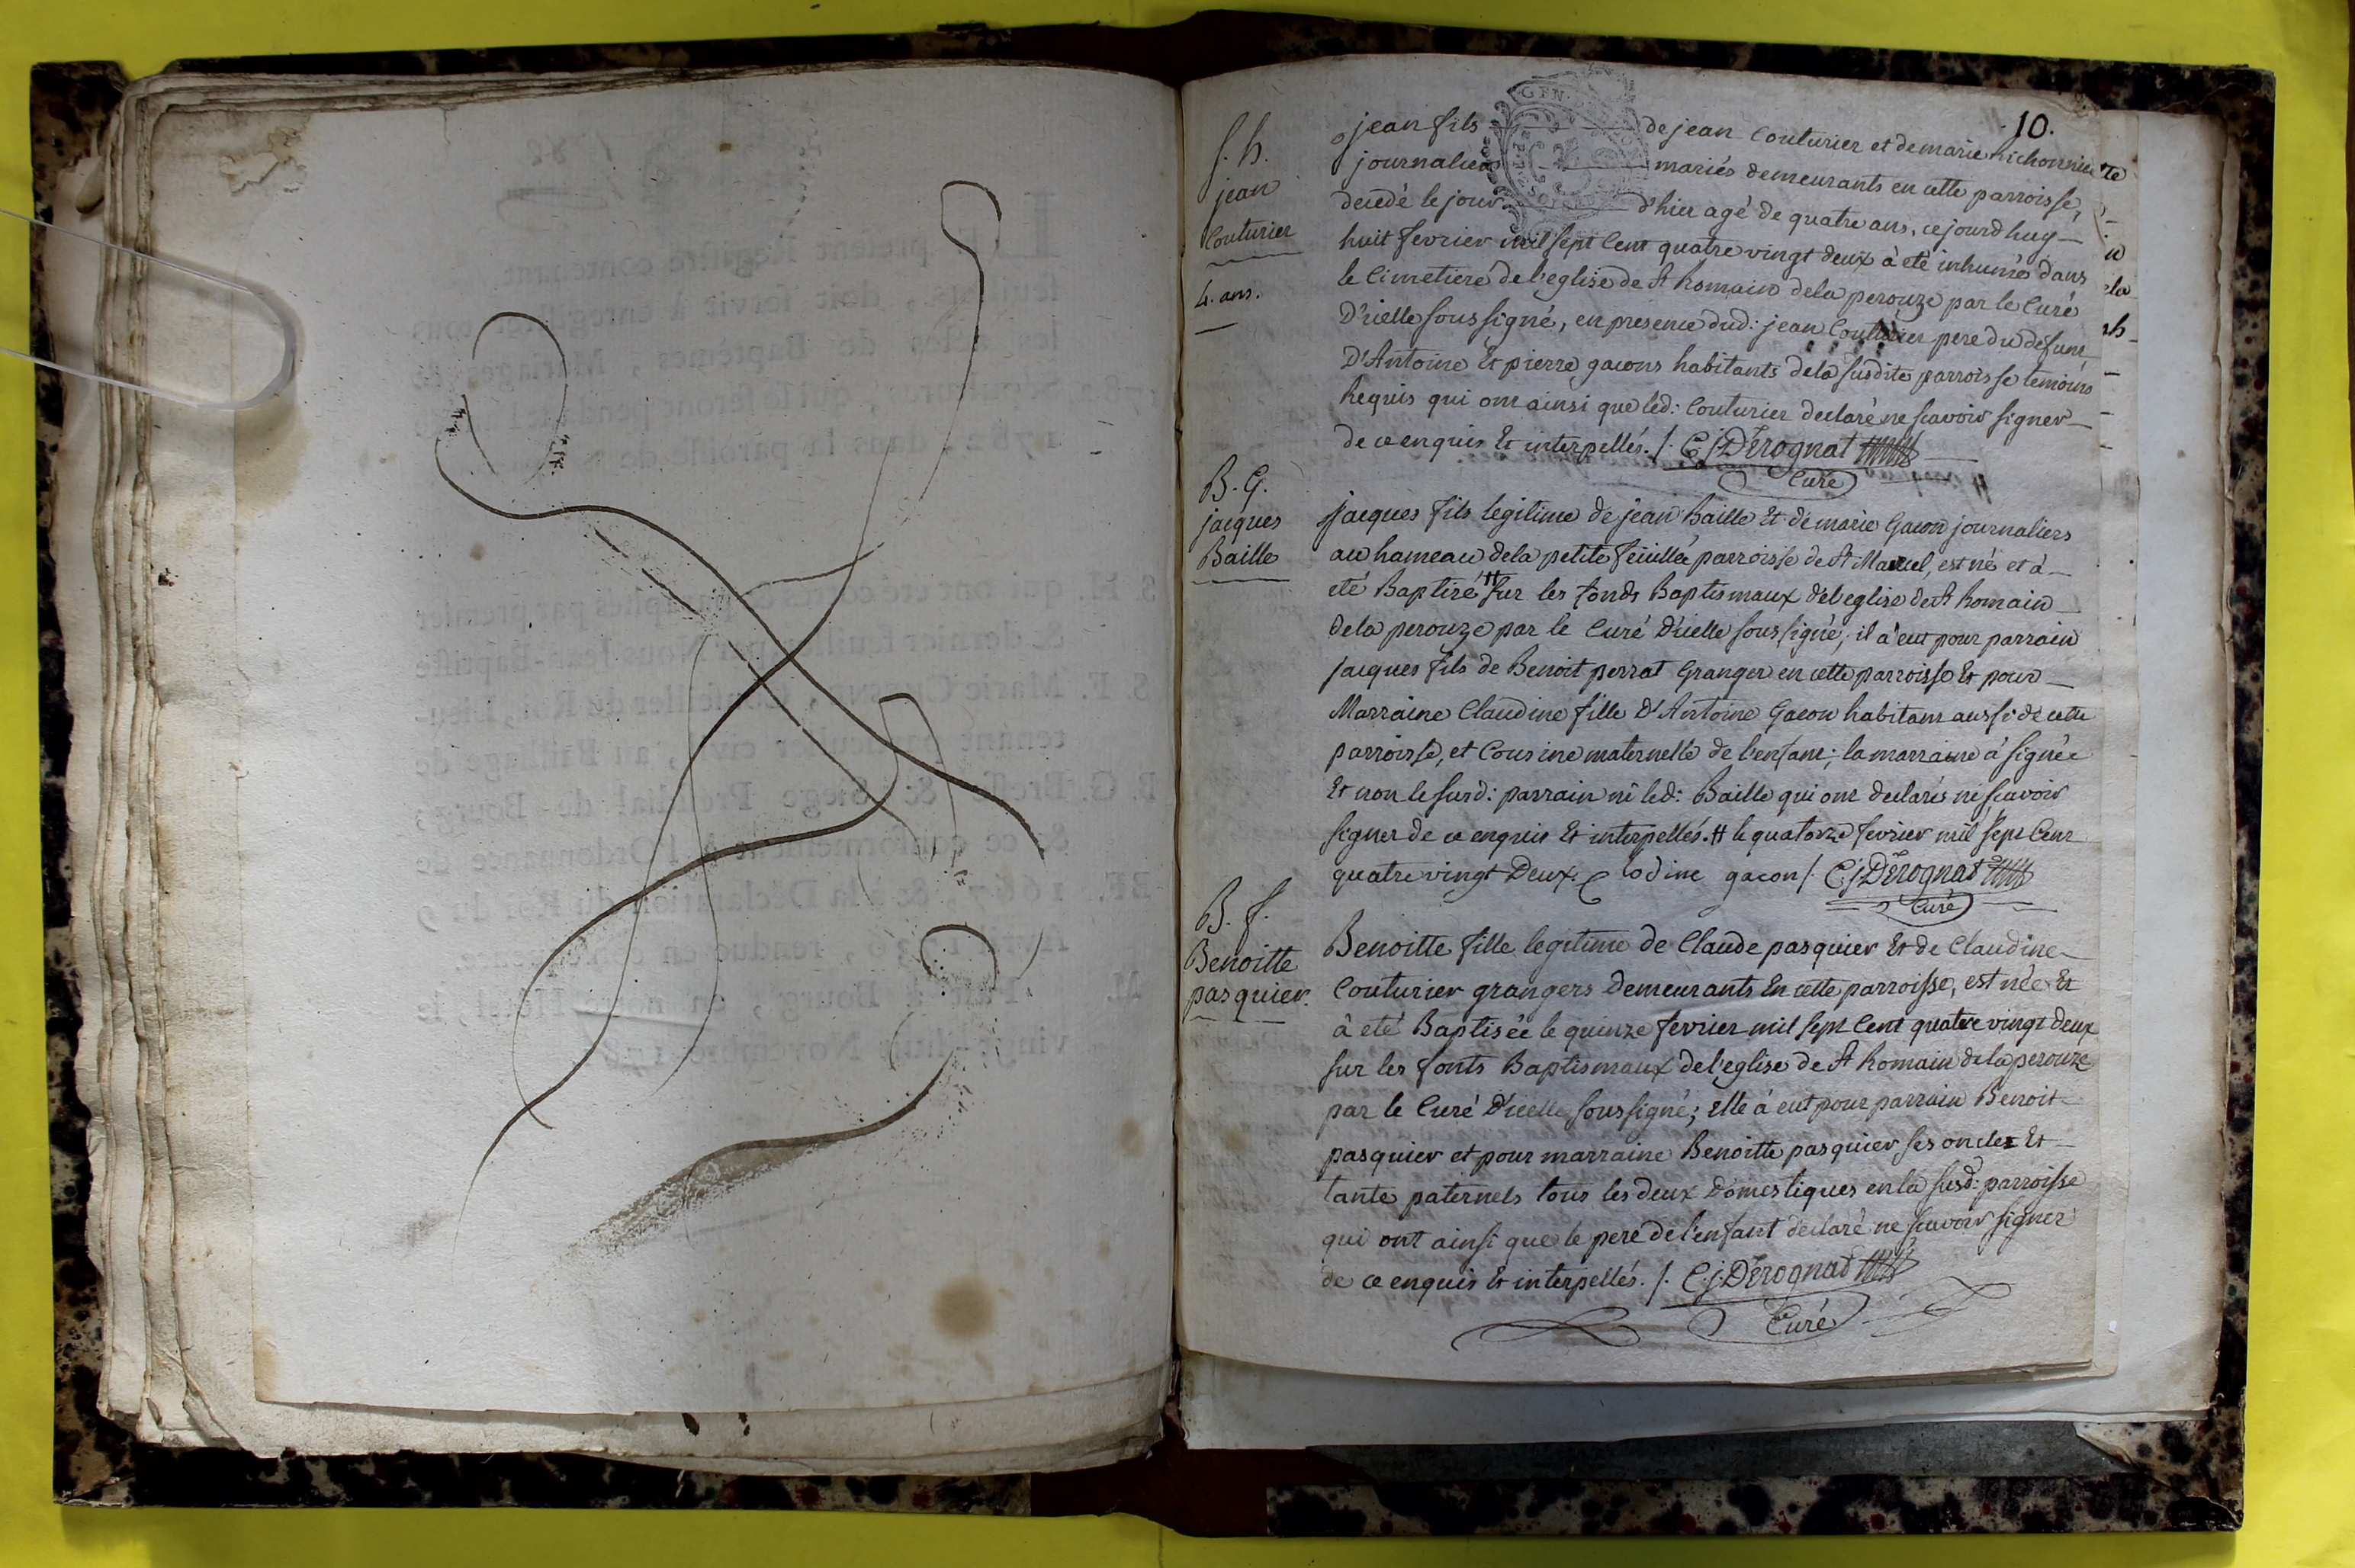 10.
S. h.
jean
Couturier
4. ans.
jean fils de jean Couturier et de marie
journaliers mariés demeurants en cette parroisse,
decedé le jour d'hier agé de quatre ans, cejourd'huy
huit fevrier mil sept Cent quatre vingt deux à eté inhumé dans
le Cimetiere de l'eglise de St Romain dela perouze par le Curé
D'icelle soussigné, en presence dud: jean Couturier pere du defunt
D'Antoine Et pierre gacons habitants dela susdite parroisse temoins
Requis qui ont ainsi que led: Couturier declaré ne scavoir signer
de ce enquis Et interpellés. /. C j Derognat
Curé
B. G.
jacques
Baille
jacques fils legitime de jean Baille Et de marie Gacon journaliers
au hameau dela petite feuillée parroisse de St Marcel, est né et à
eté Baptizé # sur les fonds Baptismaux del'eglise de St Romain
dela perouze par le Curé D'icelle soussigné; il à eut pour parrain
jacques fils de Benoit perrat Granger en cette parroisse Et pour
Marraine Claudine fille D'Antoine Gacon habitant aussi de cette
parroisse, et Cousine maternelle de l'enfant; la marraine à signée
Et non le susd: parrain ni led: Baille qui ont declarés ne scavoir
signer de ce enquis Et interpellés. # le quatorze fevrier mil sept Cent
quatre vingt Deux. Codine gacon /. C j Derognat
Curé
B. f.
Benoitte
pasquier.
Benoitte fille legitime de Claude pasquier Et de Claudine
Couturier grangers Demeurants En cette parroisse, est née Et
à eté Baptisée le quinze fevrier mil sept Cent quatre vingt deux
sur les fonts Baptismaux de l'eglise de St Romain dela perouze
par le Curé D'icelle soussigné; Elle à eut pour parrain Benoit
pasquier et pour marraine Benoitte pasquier ses oncles Et
tante paternels tous les deux Domestiques en la susd: parroisse
qui ont ainsi que le pere de l'enfant declaré ne scavoir signer
de ce enquis Et interpellés. /. C. j. Derognat
Curé